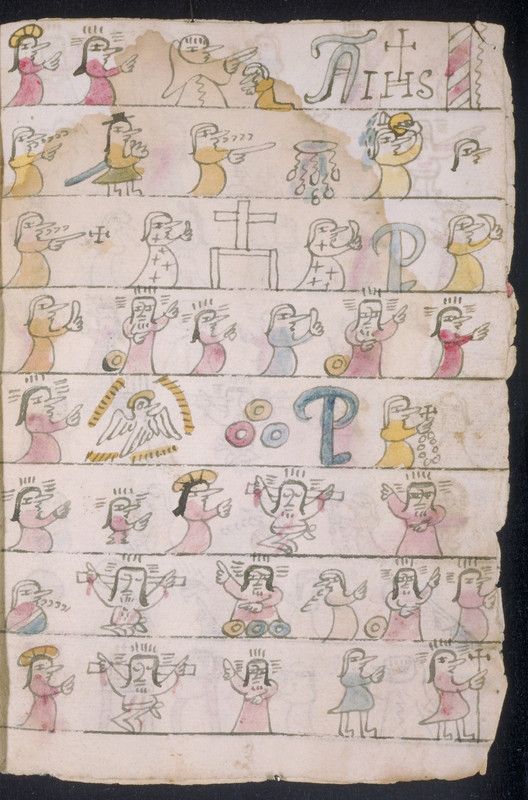 A IHS
P
P